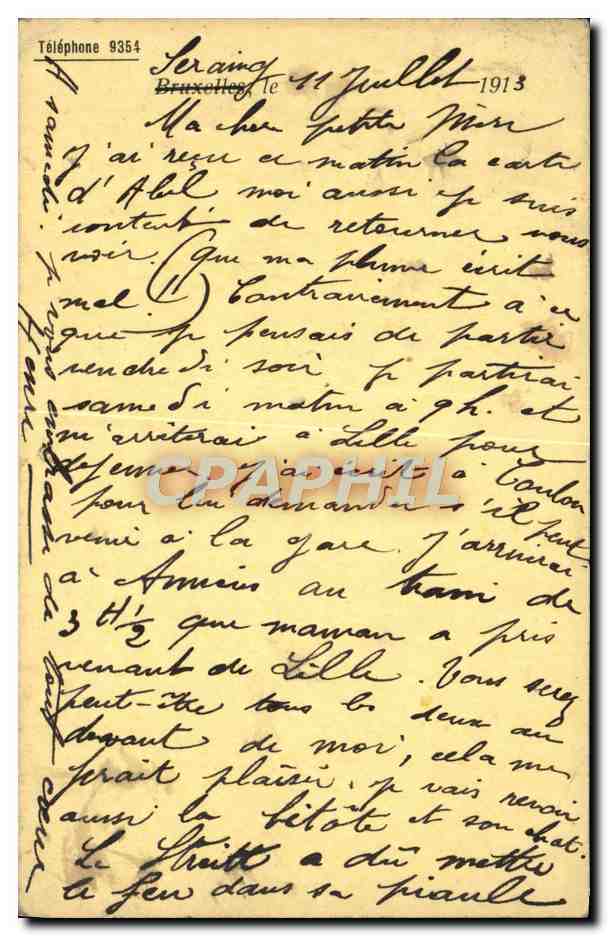 Téléphone 9354
Seraing
Bruxelles, le 11 Juillet 1913
Ma chère petite Mère
J'ai reçu ce matin la carte
d'Abel moi aussi je suis
content de retourner vous
voir. (Que ma plume écrit
mal !!) Contrairement à ce
que je pensais de partir
vendredi soir je partirai
samedi matin à 9h. et
m'arrêterai à Lille pour
déjeuner j'ai écrit à Toulon
pour lui demander s'il peut
venir à la gare. J'arriverai
à Amiens au train de
3 H 1/2 que maman a pris
venant de Lille. Vous serez
peut-être tous les deux au
devant de moi, cela me
ferait plaisir. je vais revoir
aussi la bétôte et son chat.
Le a dû mettre
le feu dans sa piaule
A samedi. je vous embrasse de tout cœur
Henri
CPAPHIL